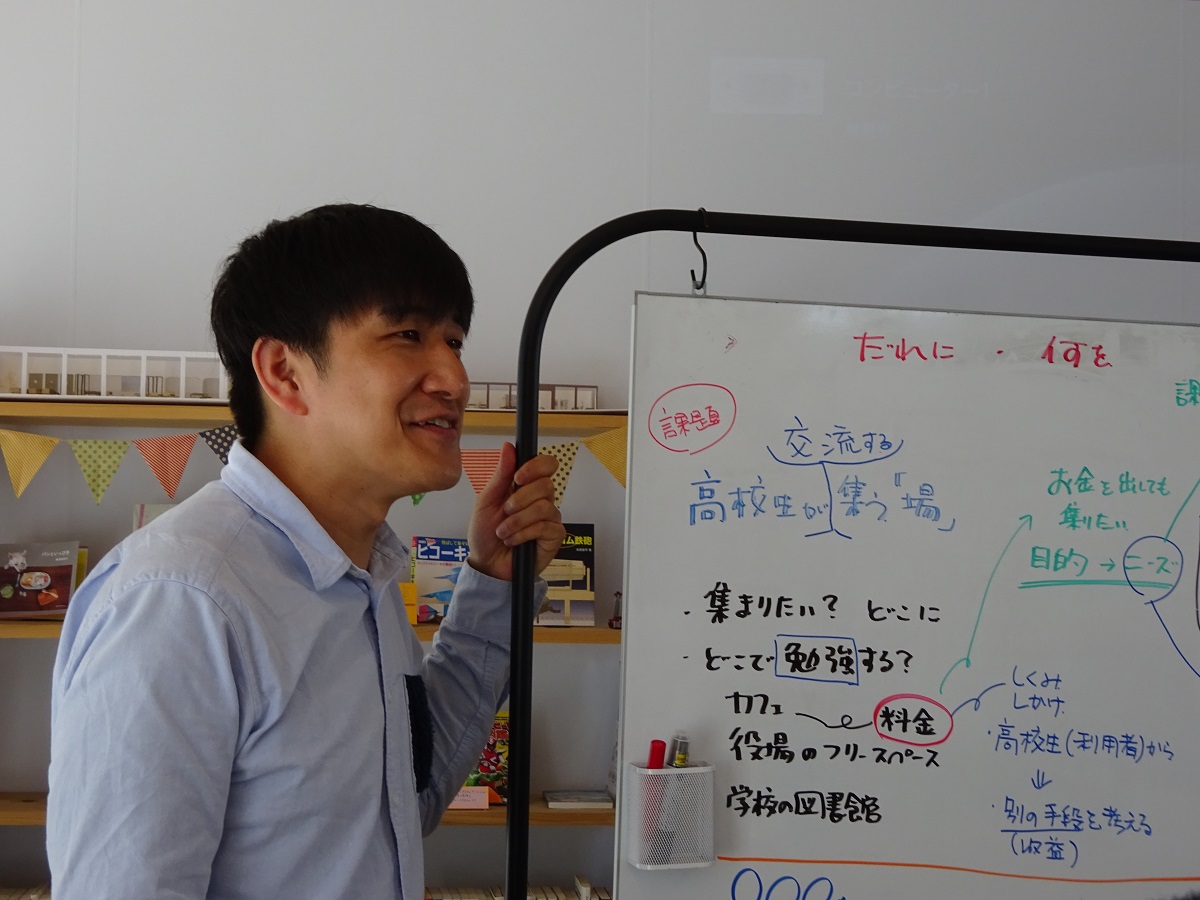 だれに・何を
課題
課
交流する
高校生が集う「場」
お金を出しても
集りたい
目的→ニーズ
・集まりたい? どこに
・どこで勉強する?
カフェ
料金
役場のフリースペース
学校の図書館
しくみ
しかけ
・高校生(利用者)から
↓
・別の手段を考える
(収益)
ヒコーキ
ゴム鉄砲